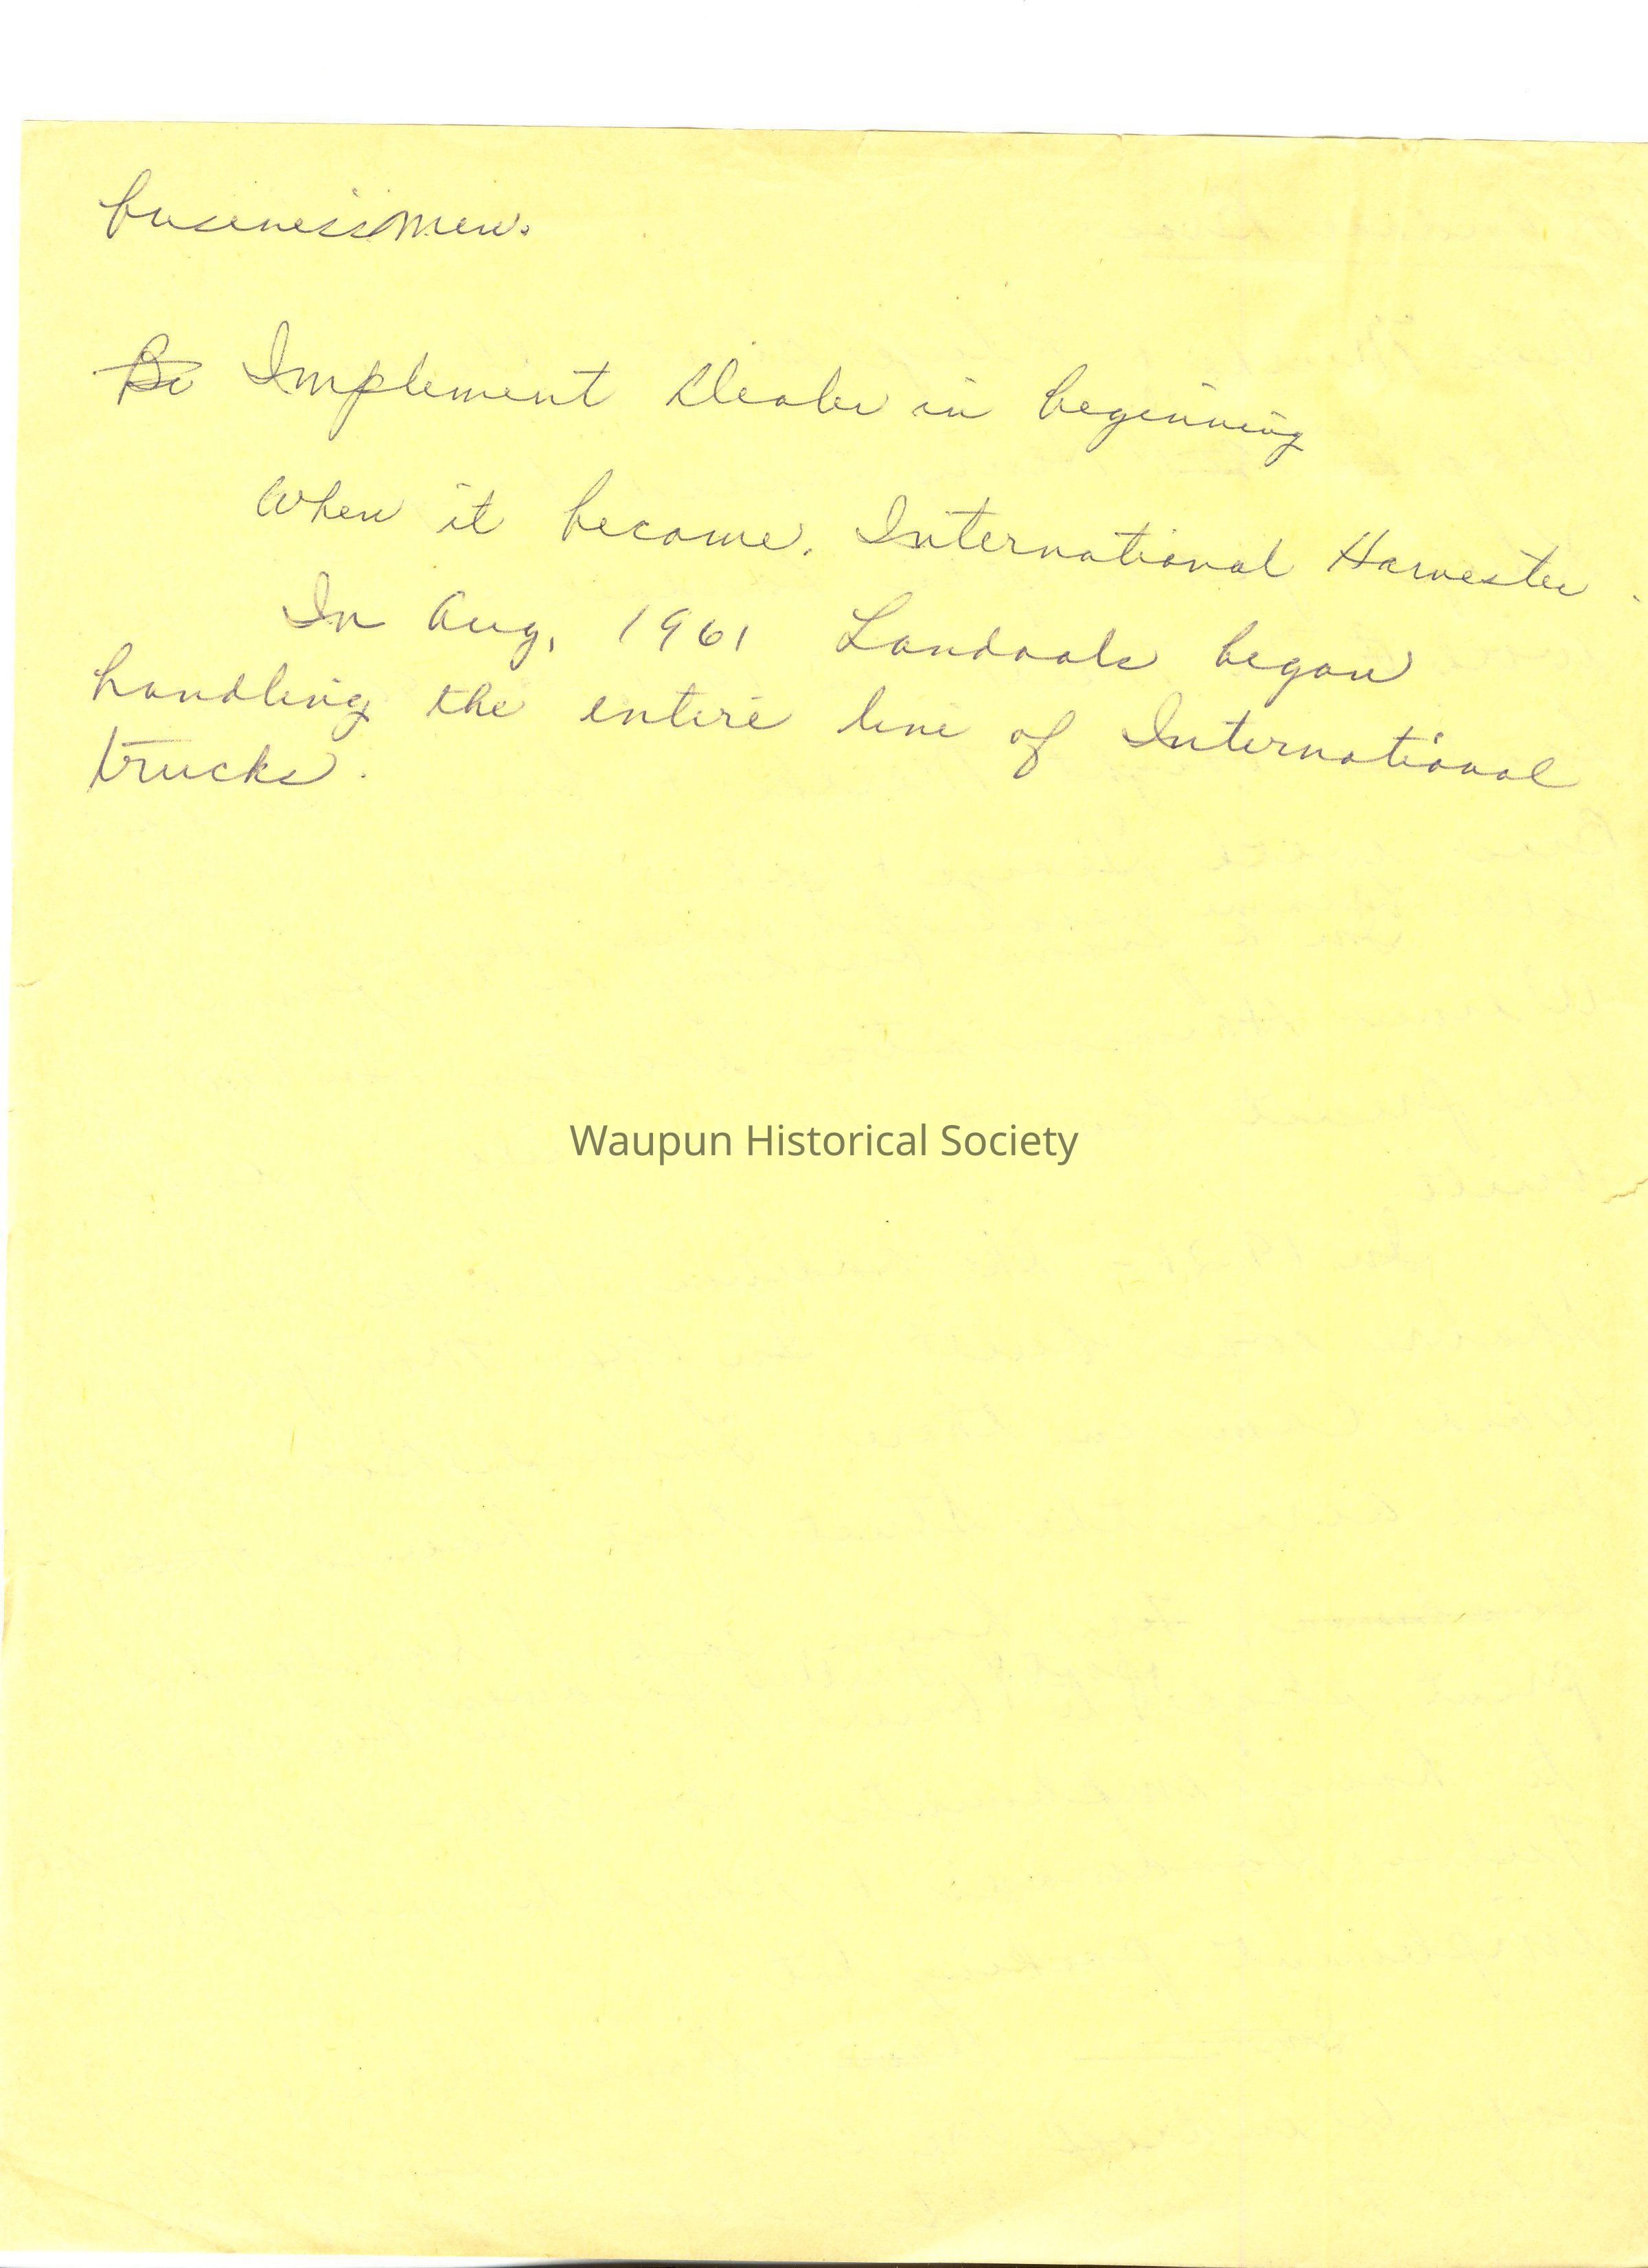 businessmen.
Be Implement Dealer in beginning
When it became. International Harvester.
In Aug, 1961 Landaals began
handling the entire line of International
trucks.
Waupun Historical Society